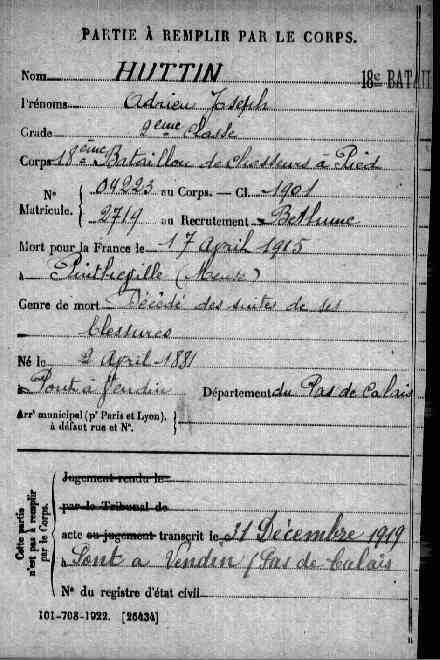 PARTIE À REMPLIR PAR LE CORPS.
Nom HUTTIN
18e BATAIL
Prénoms Adrien Joseph
Grade 2ème Classe
Corps 18ème Bataillon de Chasseurs à Pied
N° Matricule. { 04223 au Corps. — Cl. 1901
2719 au Recrutement Bethune
Mort pour la France le 17 Avril 1915
à Pintheville (Meuse)
Genre de mort Décédé des suites de ses
blessures
Né le 2 Avril 1881
à Pont à Vendin Département du Pas de Calais
Arrt municipal (pr Paris et Lyon),
à défaut rue et N°.
Cette partie n'est pas à remplir par le Corps.
Jugement rendu le
par le Tribunal de
acte ou jugement transcrit le 31 Décembre 1919
à Pont à Vendin (Pas de Calais
N° du registre d'état civil
101-708-1922. [26434]